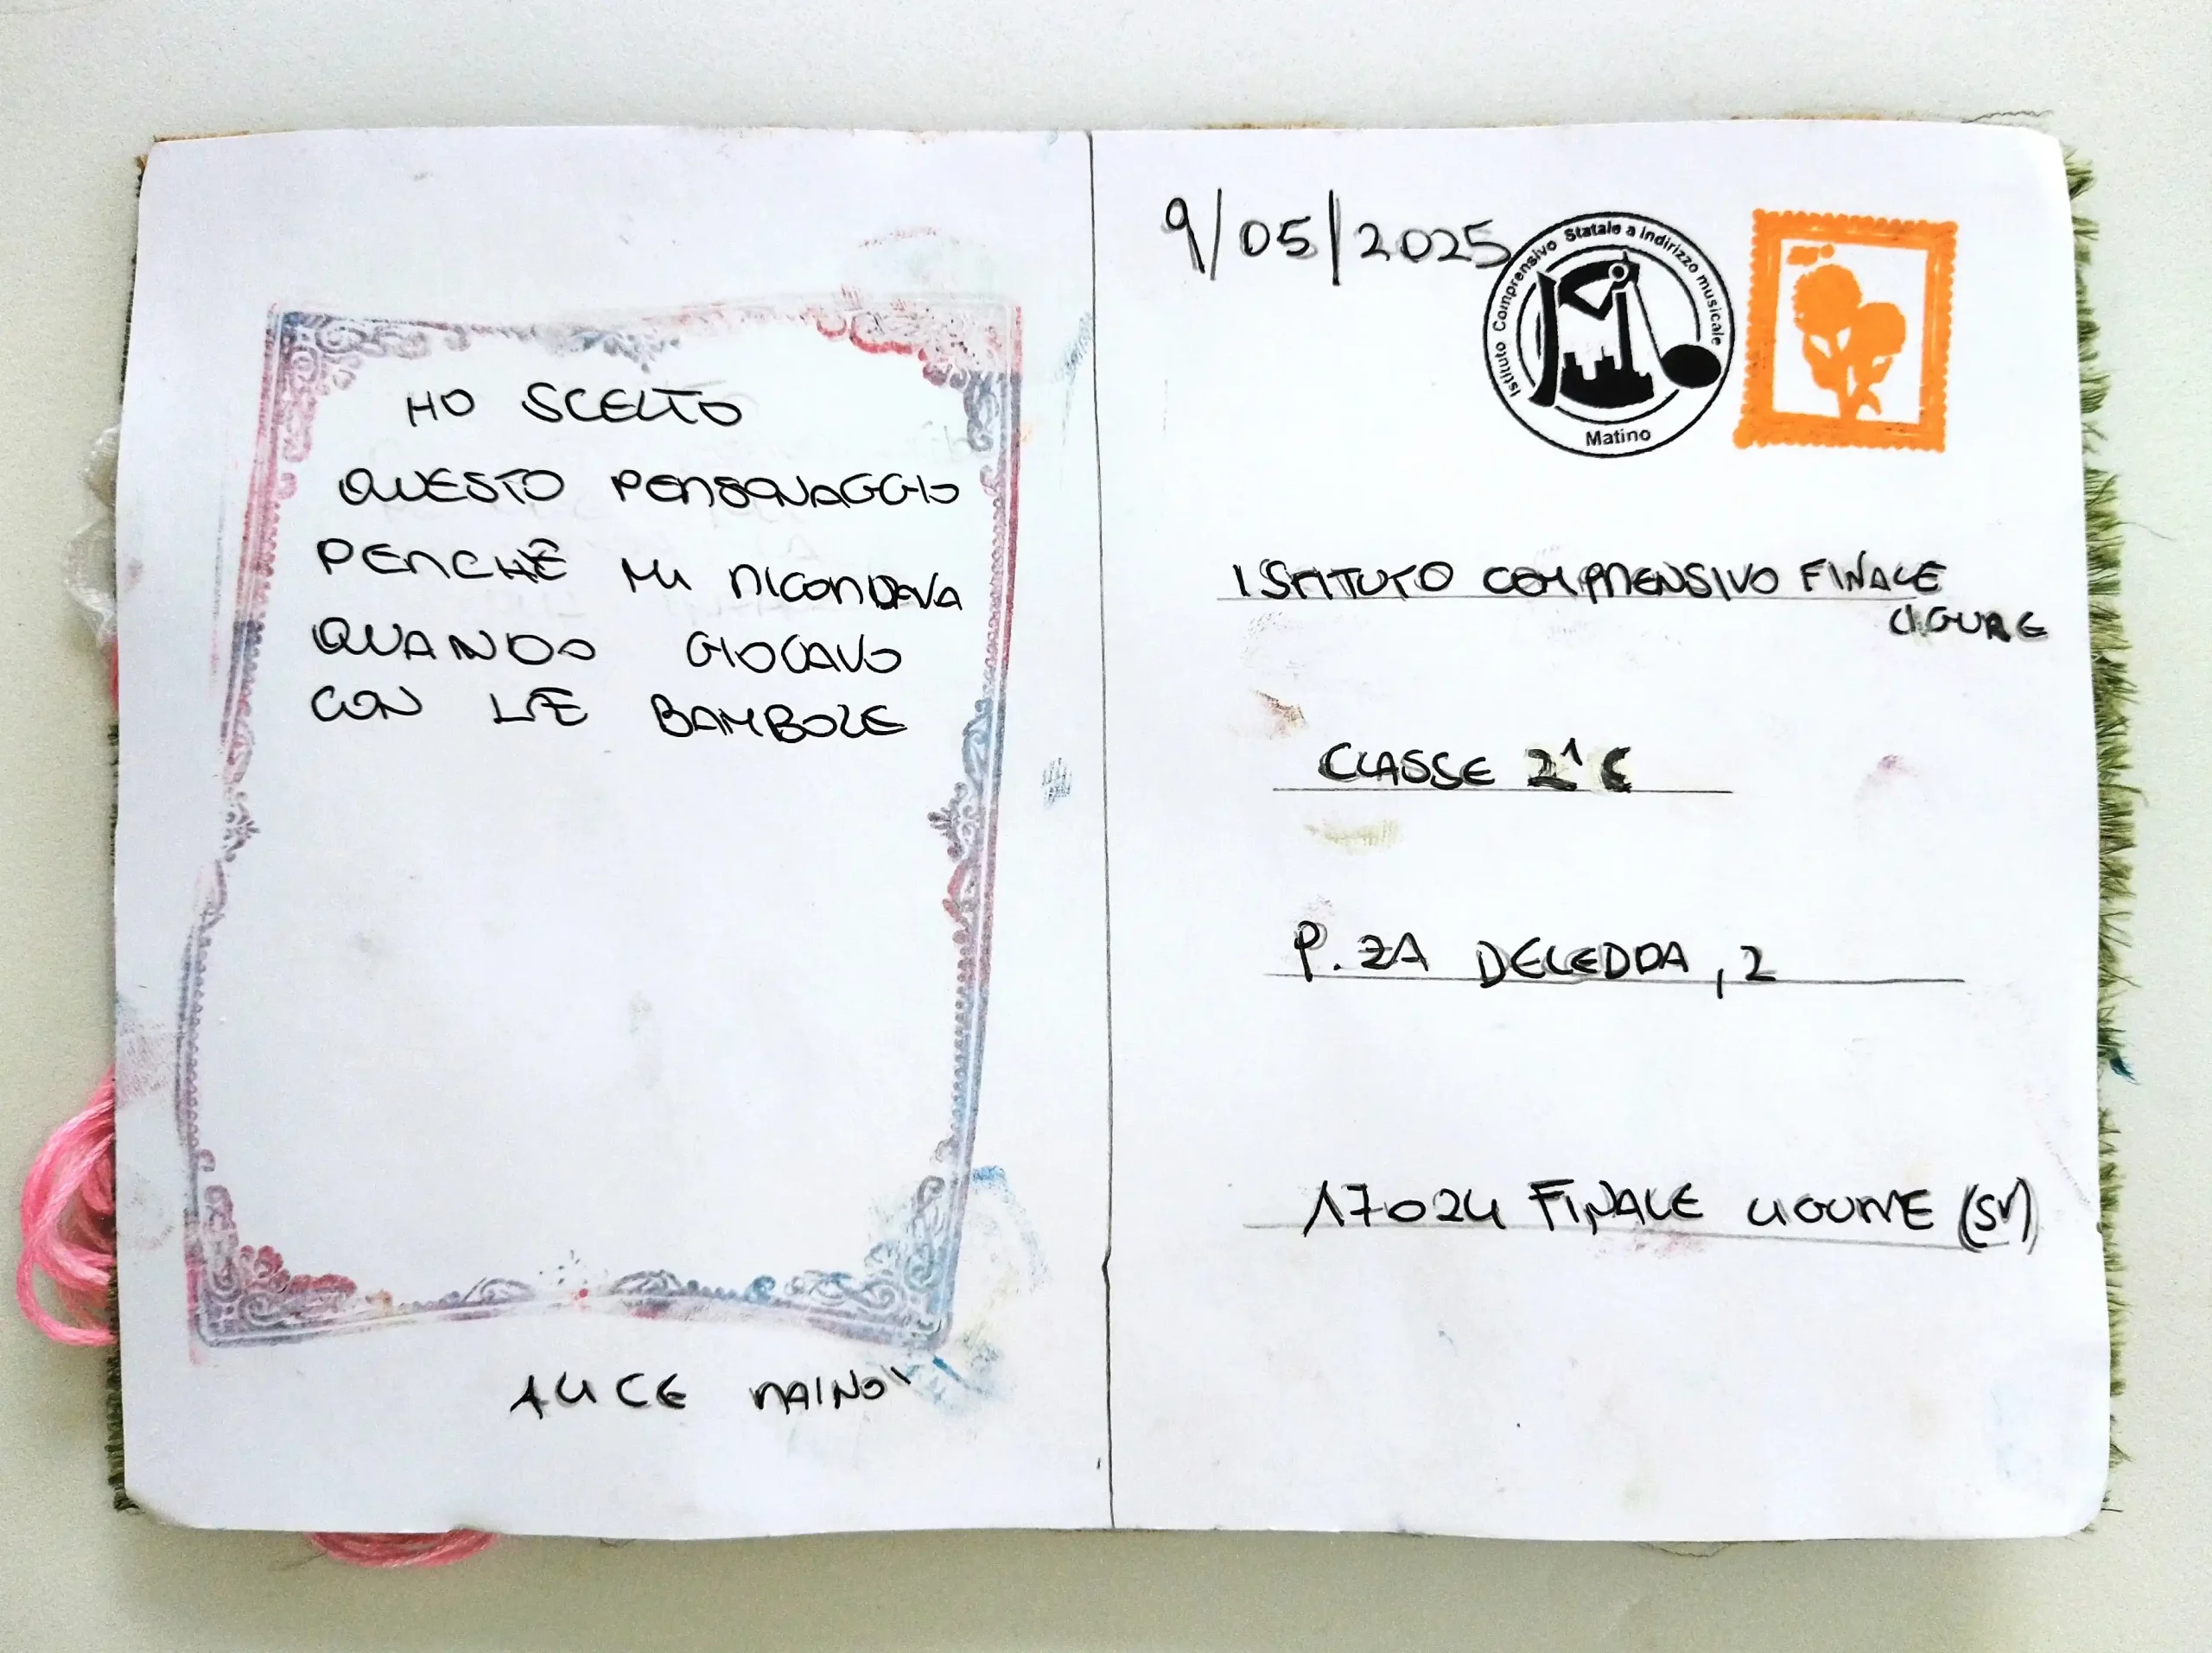 HO SCELTO
QUESTO PERSONAGGIO
PERCHÊ MI RICORDAVA
QUANDO GIOCAVO
CON LE BAMBOLE
ALICE RAINO'
9/05/2025
Istituto Comprensivo Statale a indirizzo musicale
Matino
ISTITUTO COMPRENSIVO FINALE
LIGURE
CLASSE 2^ C
P.ZA DELEDDA, 2
17024 FINALE LIGURE (SV)